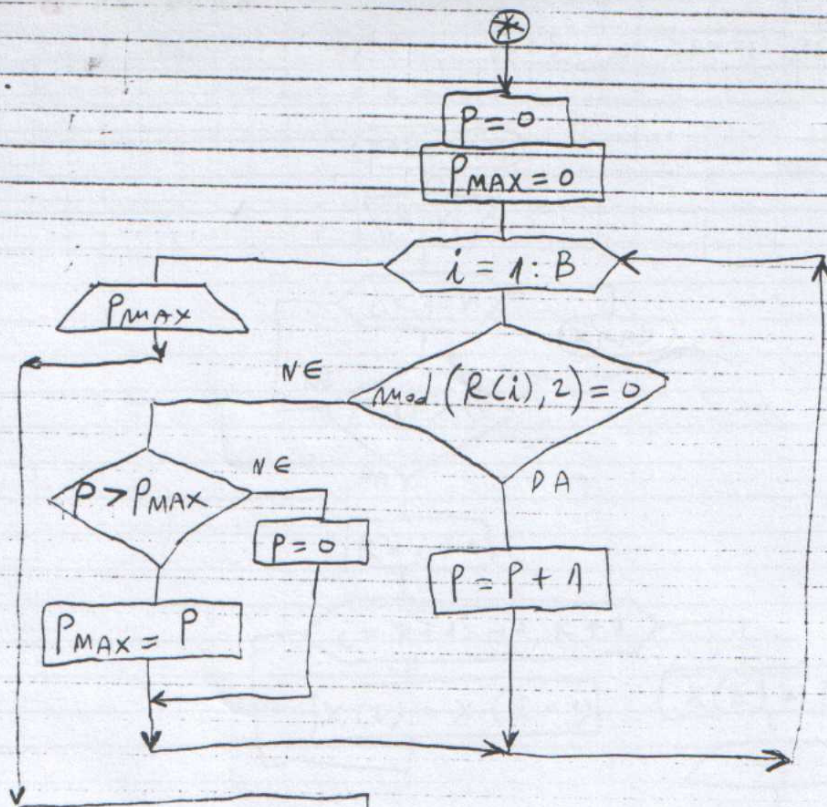 *
P = 0
PMAX = 0
i = 1 : B
PMAX
NE
mod (R(i), 2) = 0
P > PMAX
NE
DA
P = 0
P = P + 1
PMAX = P